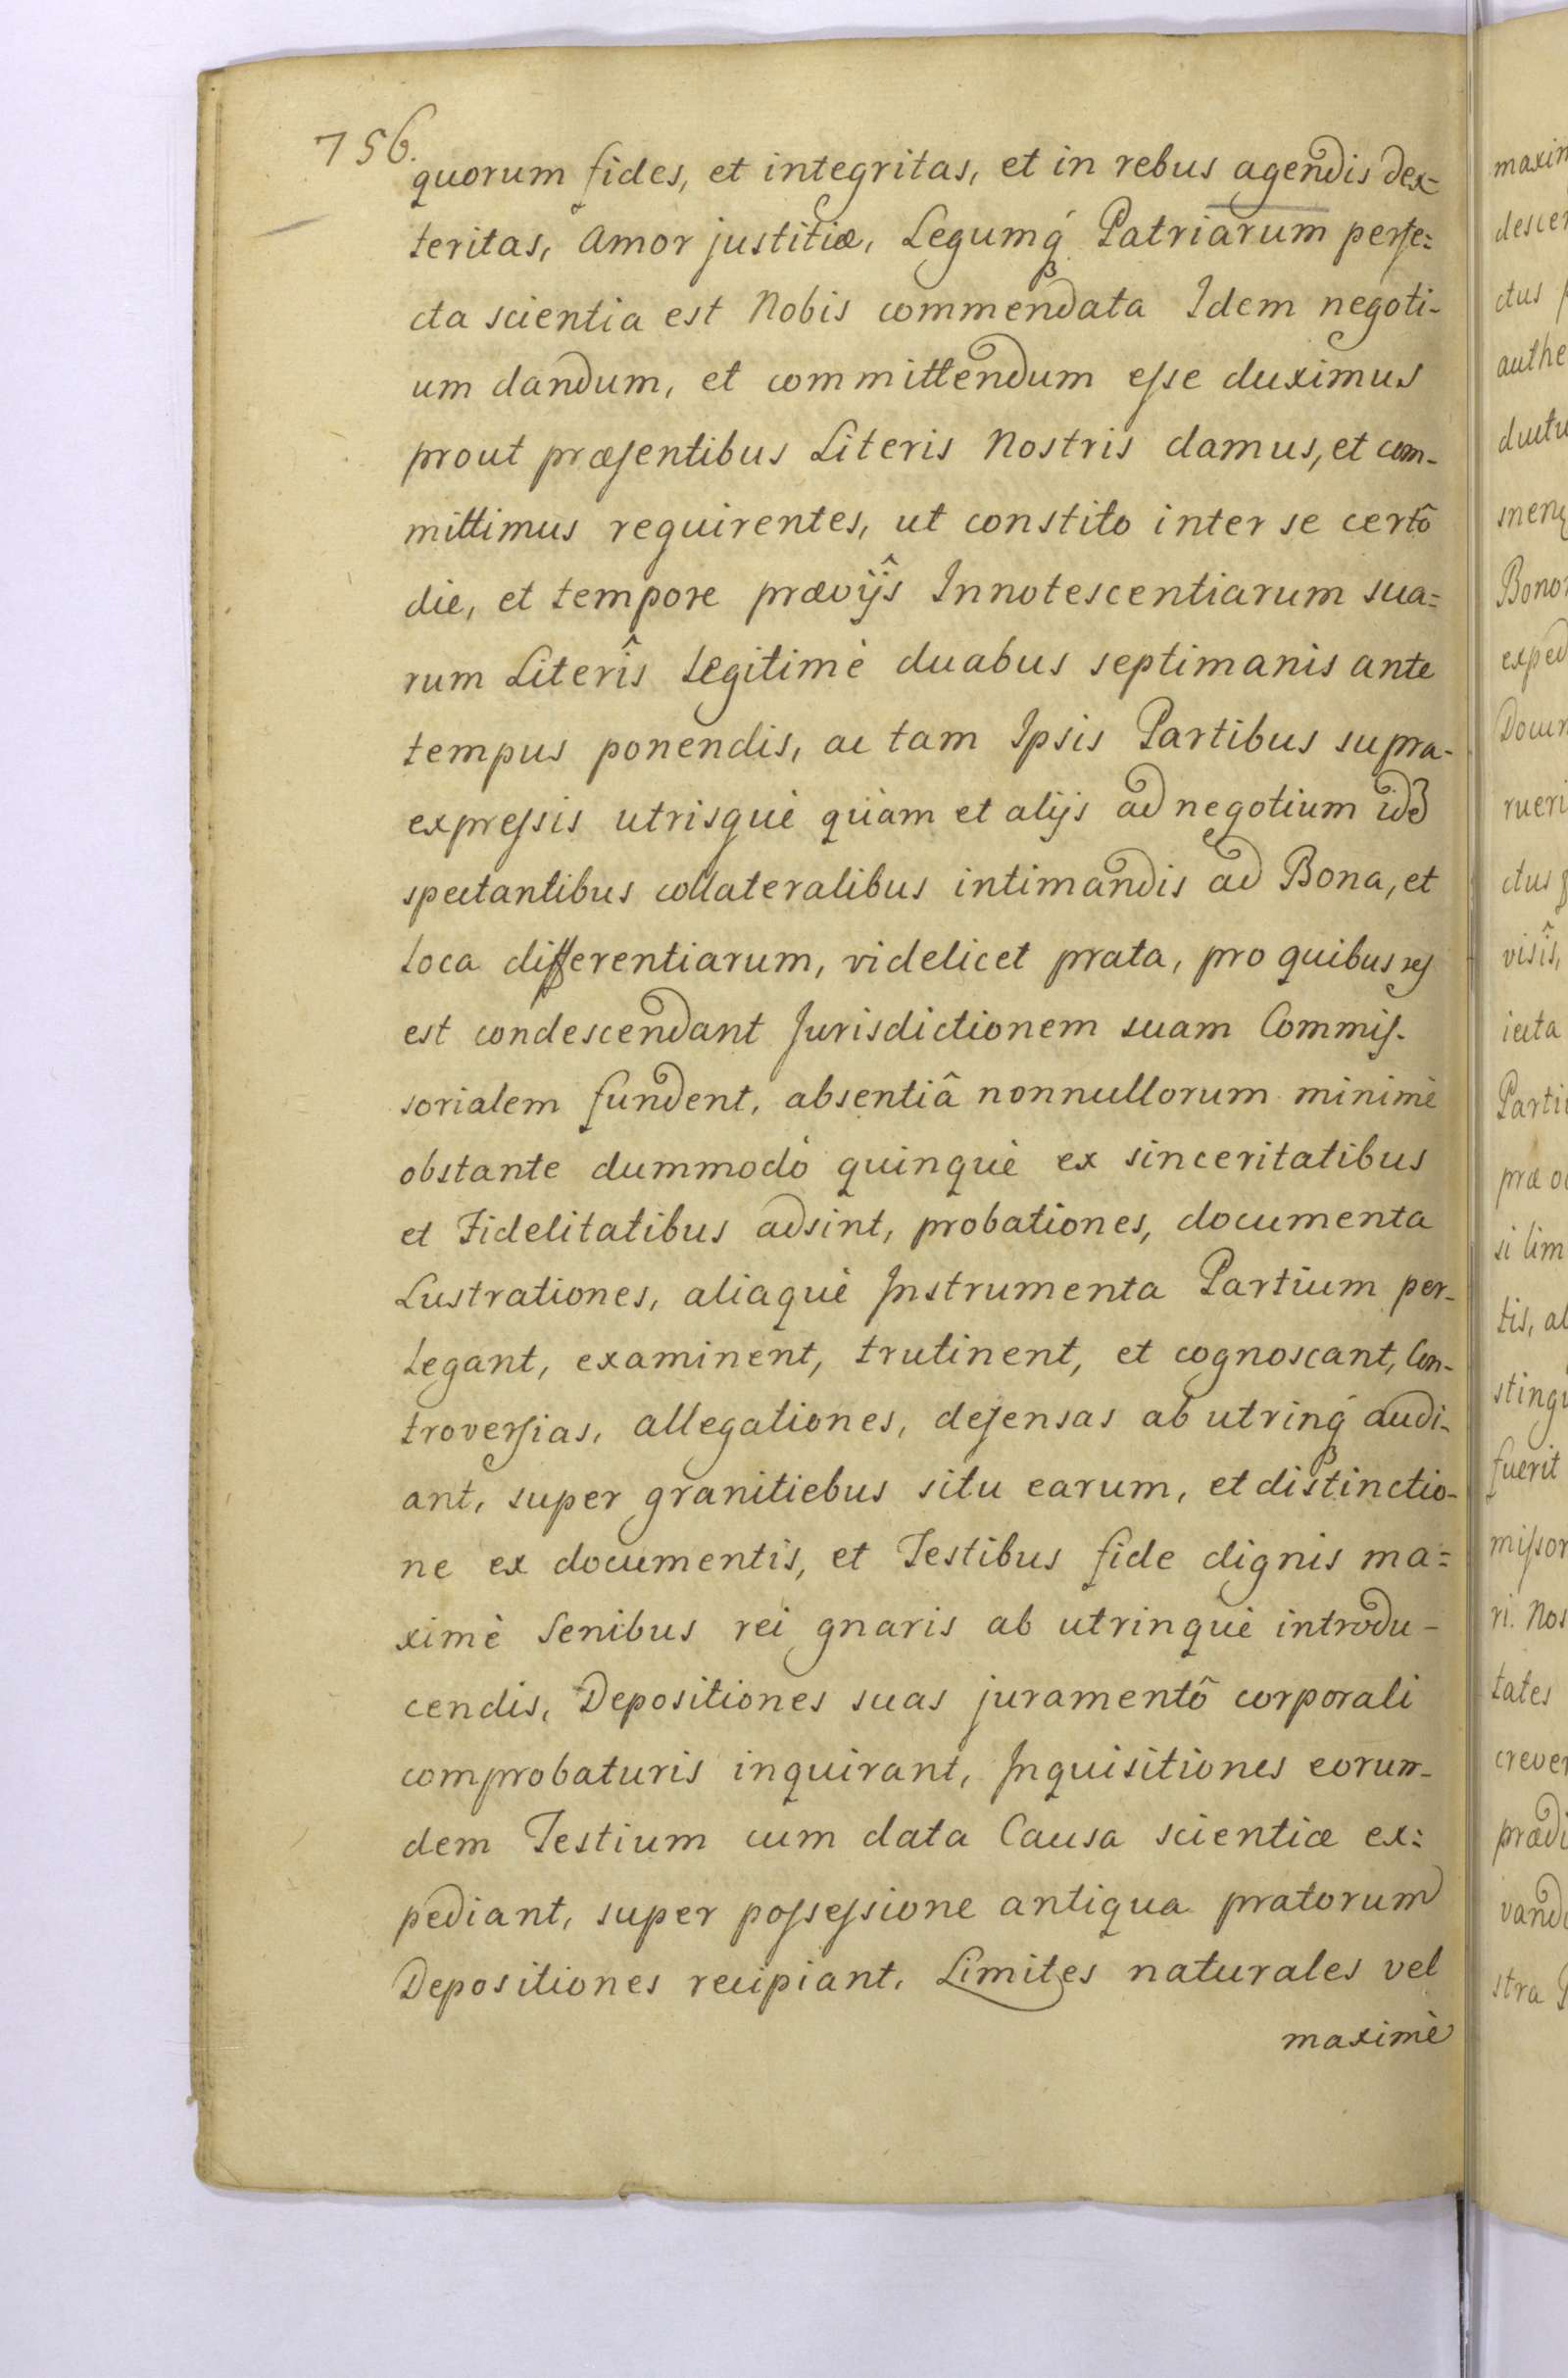 756.
quorum fides, et integritas, et in rebus agendis dex=
teritas, Amor justitiæ, Legumq́ Patriarum perfe=
cta scientia est Nobis commendata Idem negoti-
um dandum, et committendum esse duximus
prout præsentibus Literis Nostris damus, et com-
mittimus requirentes, ut constito inter se certô
die, et tempore prævijŝ Innotescentiarum sua=
rum Literîs legitimè duabus septimanis ante
tempus ponendis, ac tam Ipsis Partibus supra-
expressis utrisquè quàm et alijs ad negotium id
spectantibus collateralibus intimandis ad Bona, et
loca differentiarum, videlicet prata, pro quibus res
est condescendant Jurisdictionem suam Commis-
sorialem fundent, absentiâ nonnullorum minimè
obstante dummodò quinquè ex sinceritatibus
et Fidelitatibus adsint, probationes, documenta
Lustrationes, aliaquè Instrumenta Partium per-
legant, examinent, trutinent, et cognoscant, Con-
troversias, allegationes, defensas ab utrinq́ audi-
ant, super granitiebus situ earum, et distinctio-
ne ex documentis, et Testibus fide dignis ma=
ximè Senibus rei gnaris ab utrinquè introdu-
cendis, Depositiones suas juramentô corporali
comprobaturis inquirant, Inquisitiones eorun-
dem Testium cum data Causa scientiæ ex=
pediant, super possessione antiqua pratorum
Depositiones recipiant, Limites naturales vel
maximè
maxim
descen
ctus
authe
ductu
Bonor
exped
Docum
rueri
ctus
visîs,
iecta
Parti
præ oc
si lim
tis, al
stingu
fuerit
missor
ri. Nos
tates
crever
prædi
vand
stra